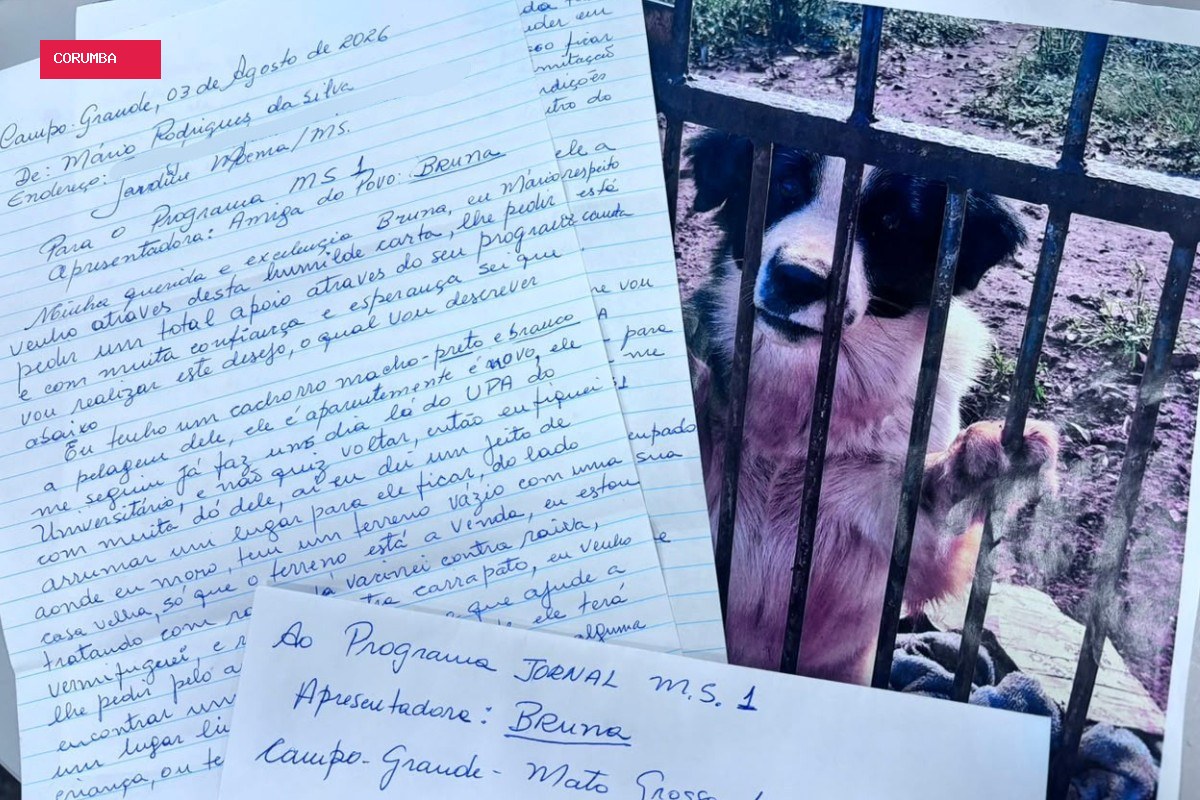 CORUMBA
Campo-Grande, 03 de Agosto de 2026
De: Mário Rodrigues da Silva
Endereço:
Jardim /MS.
Para o Programa MS 1
Apresentadora: Amiga do Povo: Bruna
Minha querida e excelência Bruna, eu Mário
venho através desta humilde carta, lhe pedir
pedir um total apoio atraves do seu programa
e com muita confiança e esperança sei que
vou realizar este desejo, o qual vou descrever
abaixo
Eu tenho um cachorro macho-preto e branco
a pelagem dele, ele é aparentemente é novo, ele
me seguiu já faz uns dia lá do UPA do
Universitário, e não quiz voltar, então eu fiquei
com muita dó dele, aí eu dei um jeito de
arrumar um lugar para ele ficar, do lado
aonde eu moro, tem um terreno vázio com uma
casa velha, só que o terreno está a venda, eu estou
tratando com vacinei contra raiva,
vermifuguei, e carrapato, eu venho
lhe pedir pelo a que ajude a
encontrar um ele terá
um lugar alguma
criança, ou te
da
der em
ficar
mitação
dições
tro do
ele a
respeito
está
cauda
me vou
A
para
me
cupado
sua
e
Ao Programa JORNAL M.S. 1
Apresentadora: Bruna
Campo-Grande - Mato Grosso